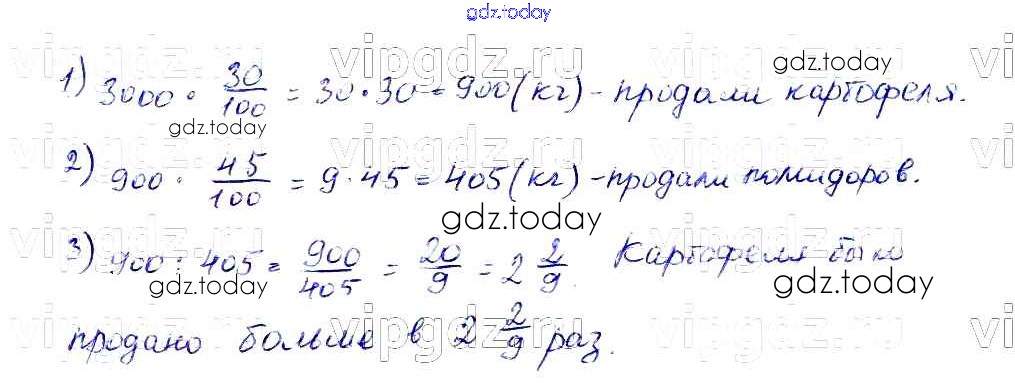 gdz.today
1) 3000 · 30/100 = 30 · 30 = 900 (кг) - продали картофеля.
2) 900 · 45/100 = 9 · 45 = 405 (кг) - продали помидоров.
3) 900 : 405 = 900/405 = 20/9 = 2 2/9. Картофеля было
продано больше в 2 2/9 раз.
vipgdz.ru
gdz.today
gdz.today
gdz.today
gdz.today
gdz.today